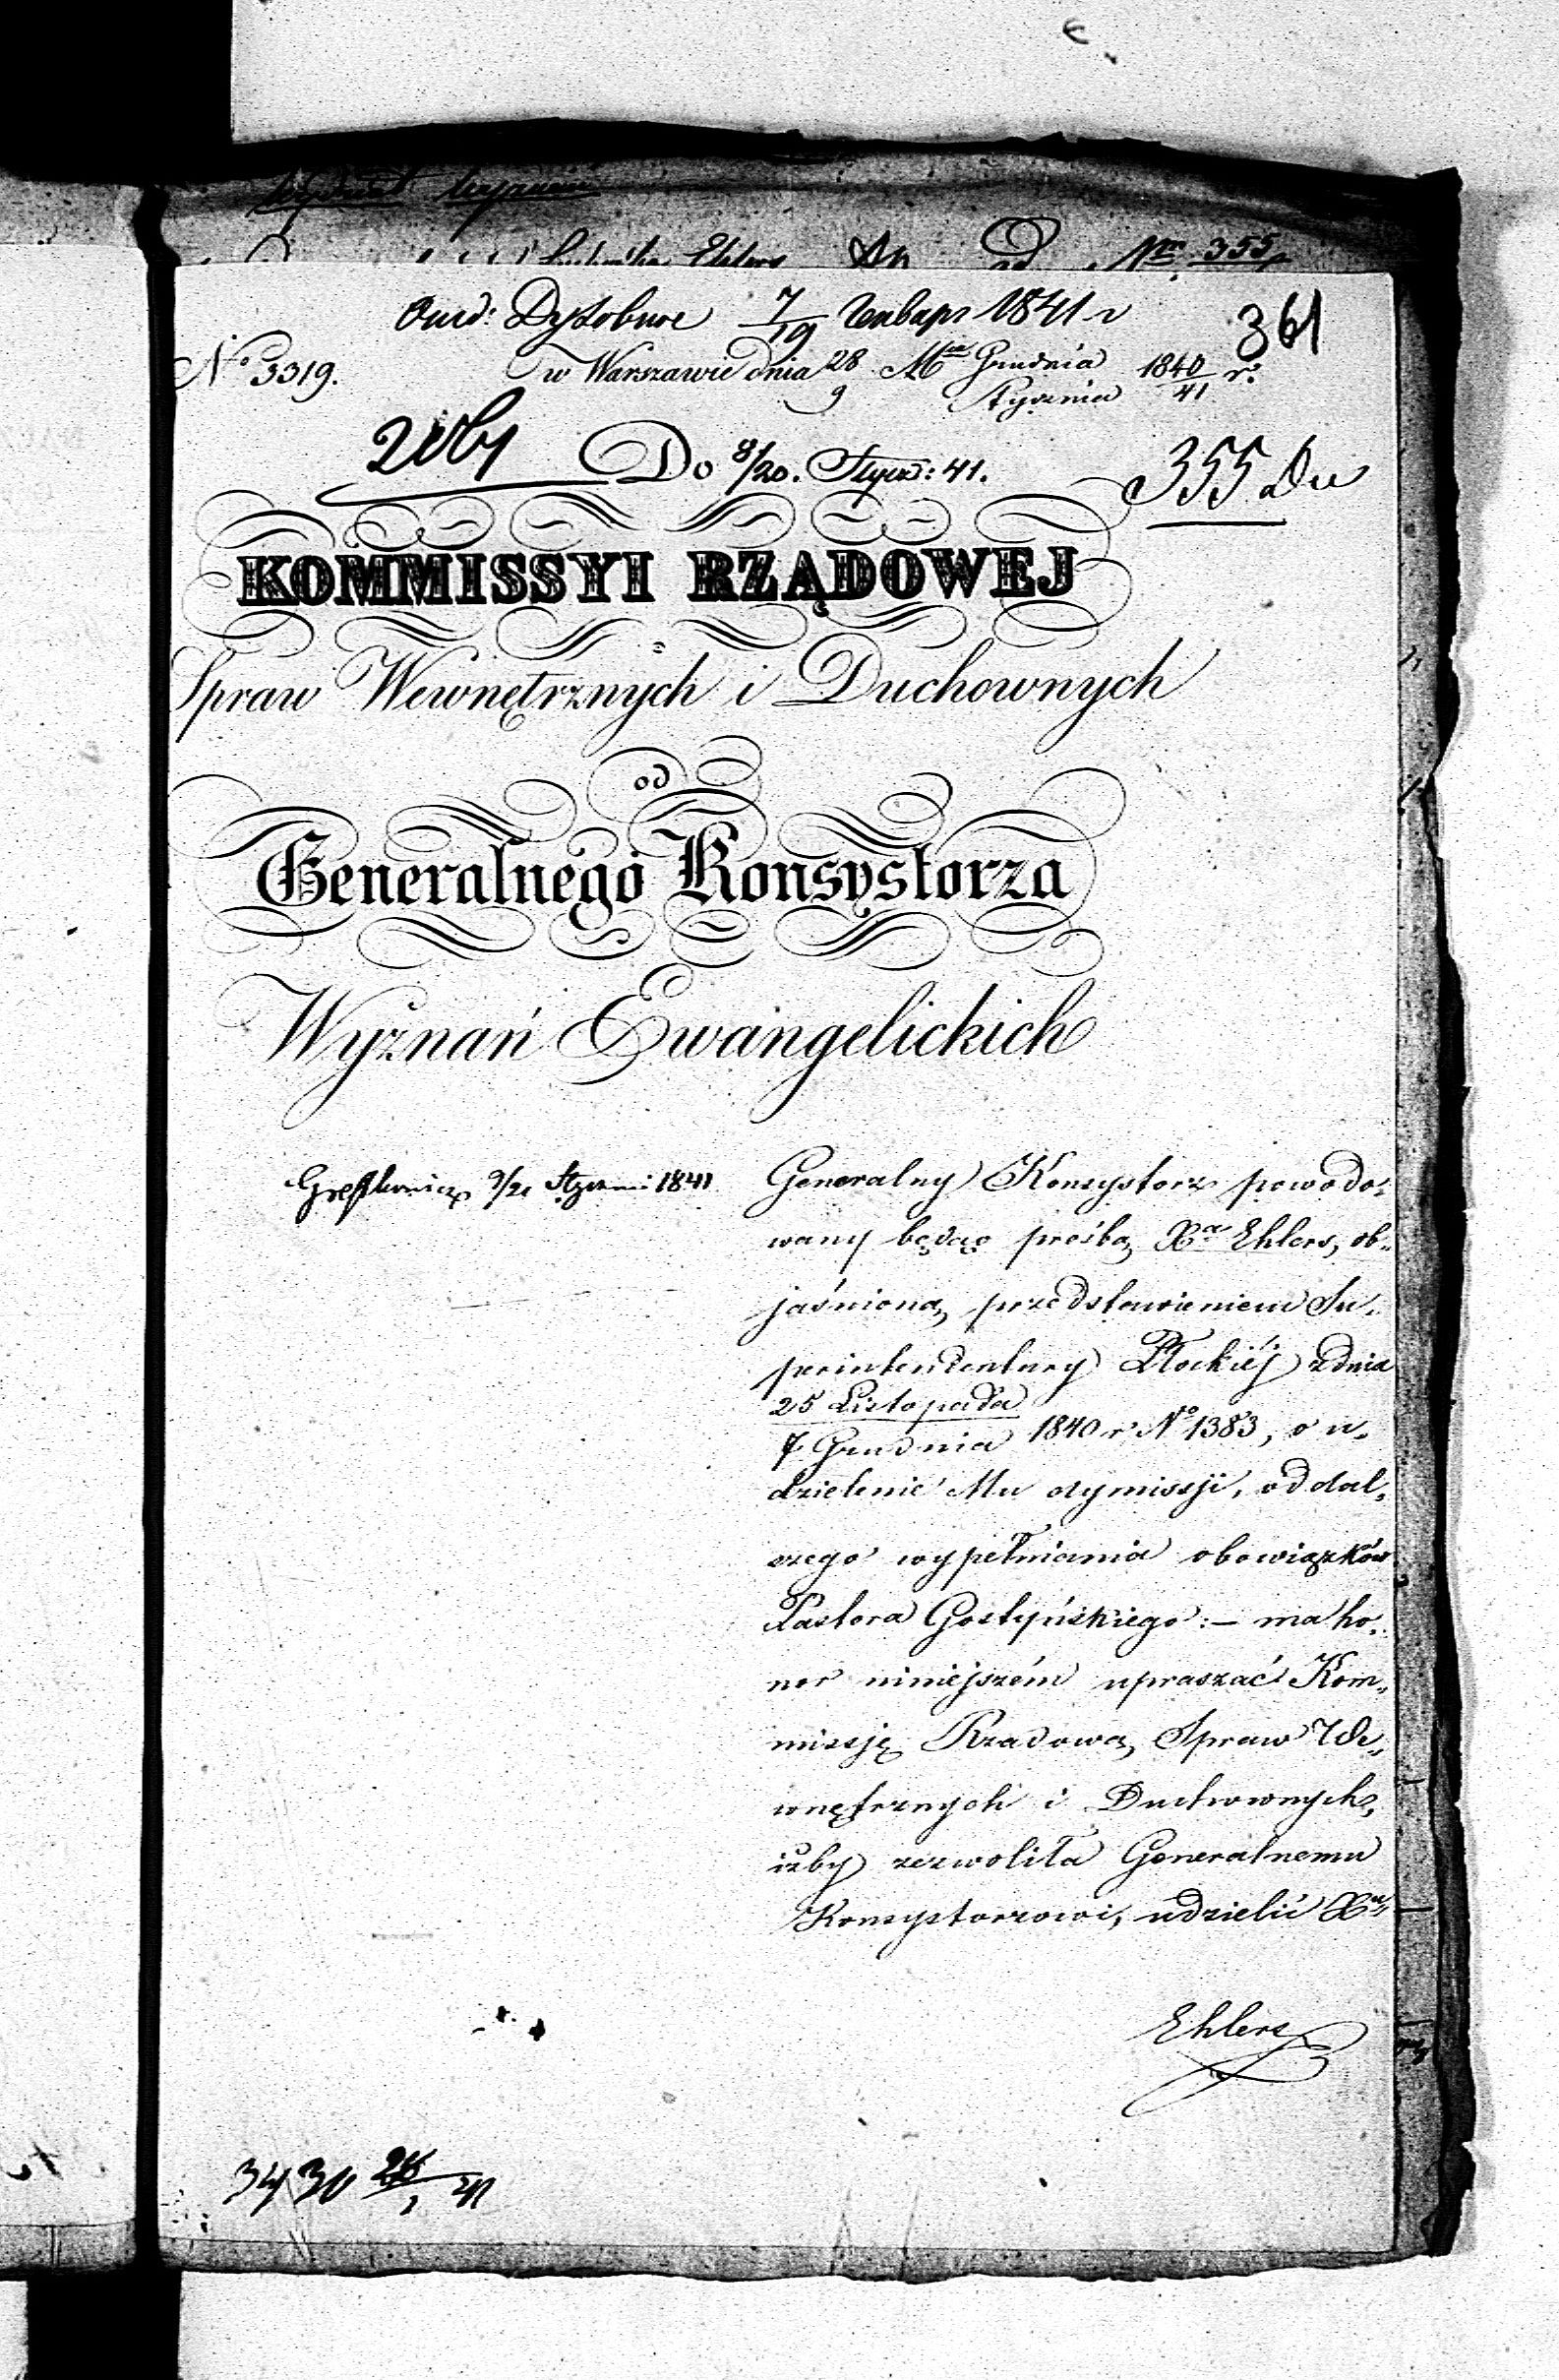 Ehlers Nr 355
7/19 Января 1841 г
361
No 3319.
w Warszawie dnia 28/9 Mca Grudnia/Stycznia 1840/41 r.
Do 8/20. Stycz: 41.
355
KOMMISSYI RZĄDOWEJ
Spraw Wewnętrznych i Duchownych
od
Generalnego Konsystorza
Wyznań Ewangelickich
9/21 Stycznia 1841
Generalny Konsystorz powodo-
wany będąc prośbą Xa Ehlers, ob-
jaśnioną przedstawieniem Su-
perintendentury Płockiéj z dnia
25 Listopada/7 Grudnia 1840 r No 1383, o u-
dzielenie Mu dymissji, od dal-
szego wypełniania obowiązków
Pastora Gostyńskiego:- ma ho-
nor niniejszém upraszać Kom-
missję Rządową Spraw We-
wnętrznych i Duchownych,
iżby zezwoliła Generalnemu
Konsystorzowi, udzielić Xu
Ehlers
3430